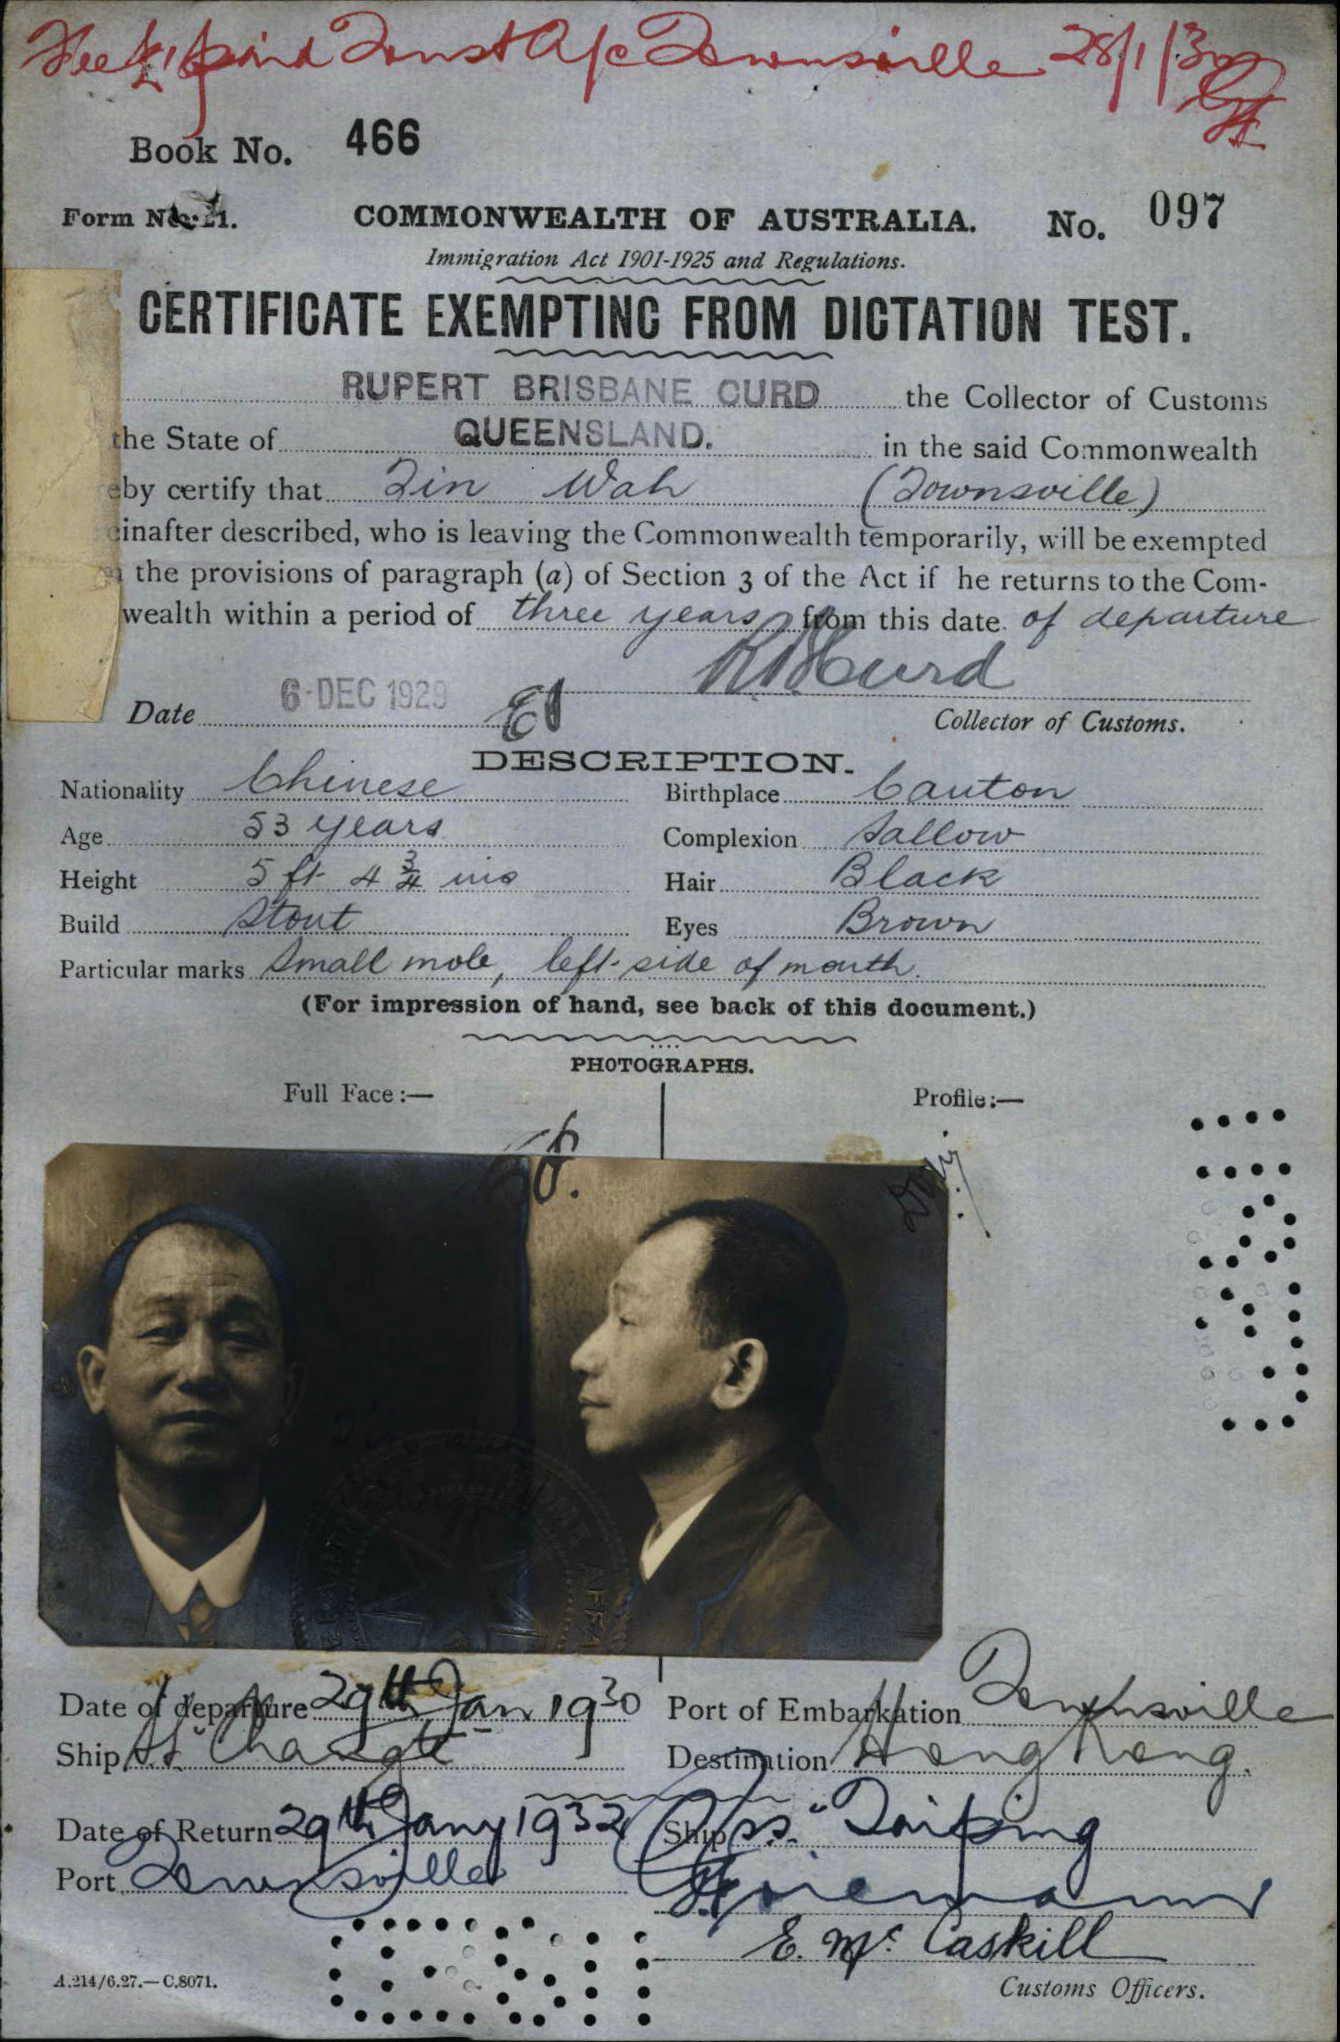 Fee £1 paid Trust A/c Townsville 28/1/30
Book No. 466
Form No. 21.
COMMONWEALTH OF AUSTRALIA. No. 097
Immigration Act 1901-1925 and Regulations.
CERTIFICATE EXEMPTING FROM DICTATION TEST.
RUPERT BRISBANE CURD the Collector of Customs
the State of QUEENSLAND. in the said Commonwealth
eby certify that Tin Wah (Townsville)
einafter described, who is leaving the Commonwealth temporarily, will be exempted
the provisions of paragraph (a) of Section 3 of the Act if he returns to the Com-
wealth within a period of three years from this date of departure
R B Curd
Date 6 DEC 1929
Collector of Customs.
DESCRIPTION.
Nationality Chinese Birthplace Canton
Age 53 years Complexion Sallow
Height 5 ft 4 3/4 ins Hair Black
Build Stout Eyes Brown
Particular marks Small mole, left side of mouth.
(For impression of hand, see back of this document.)
PHOTOGRAPHS.
Full Face:— Profile:—
Date of departure 29th Jan 1930 Port of Embarkation Townsville
Ship Changte Destination Hong Kong.
Date of Return 29th Jany 1932 Ship ss "Taiping
Port Townsville
E. Mc Caskill
A.214/6.27.—C.8071.
Customs Officers.